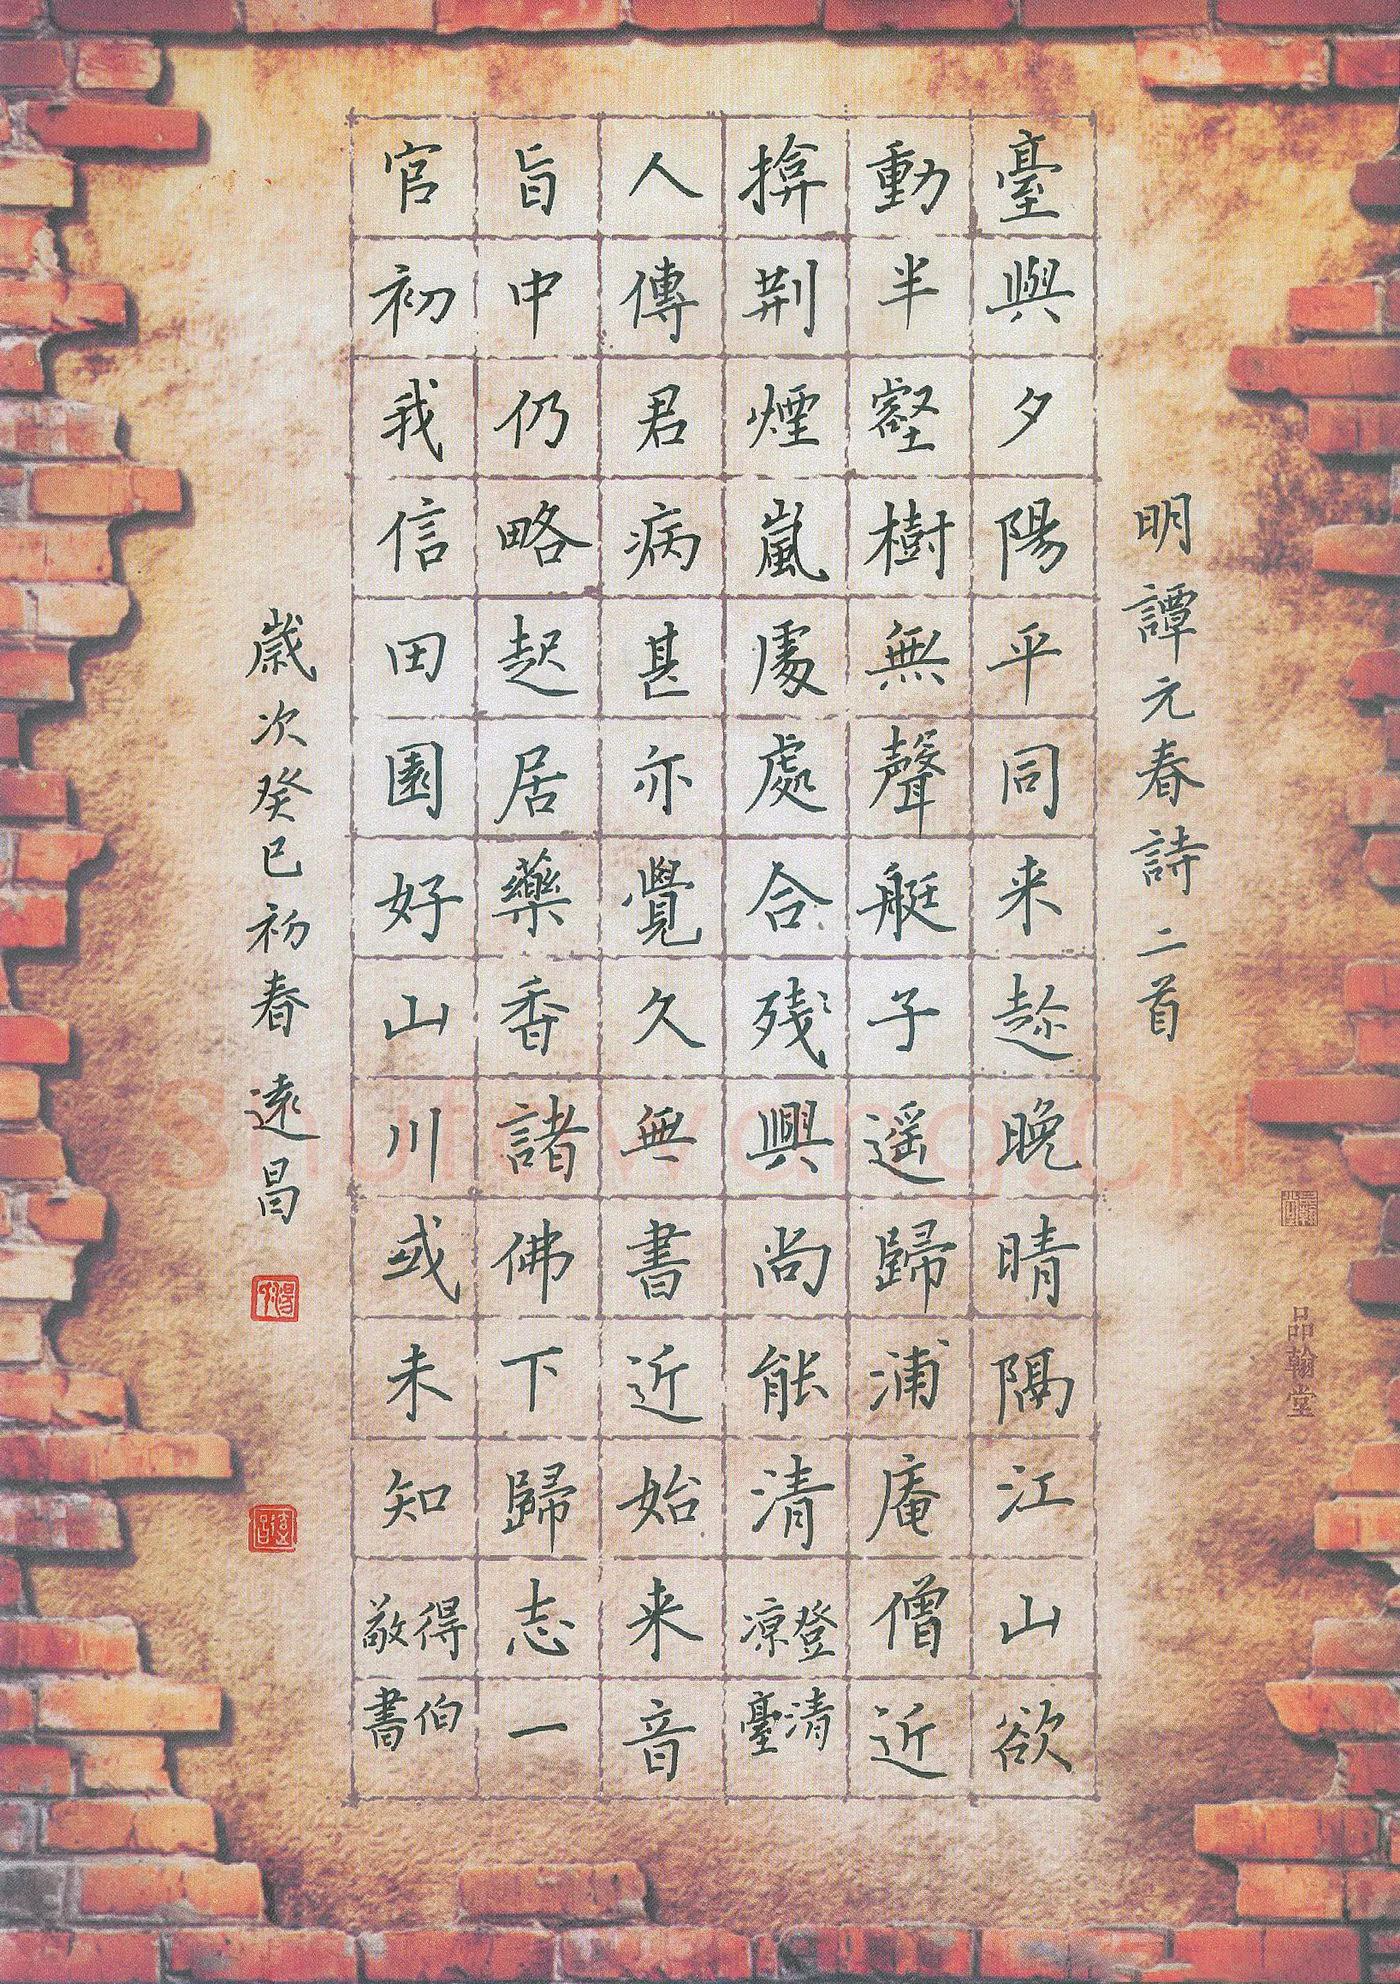 明譚元春詩二首
臺與夕陽平同来趂晚晴隔江山欲
動半壑樹無聲艇子遥歸浦庵僧近
揜荆煙嵐處處合残興尚能清登清涼臺
人傳君病甚亦覺久無書近始来音
旨中仍略起居藥香諸佛下歸志一
官初我信田園好山川或未知得伯敬書
歲次癸巳初春 遠昌
品翰堂